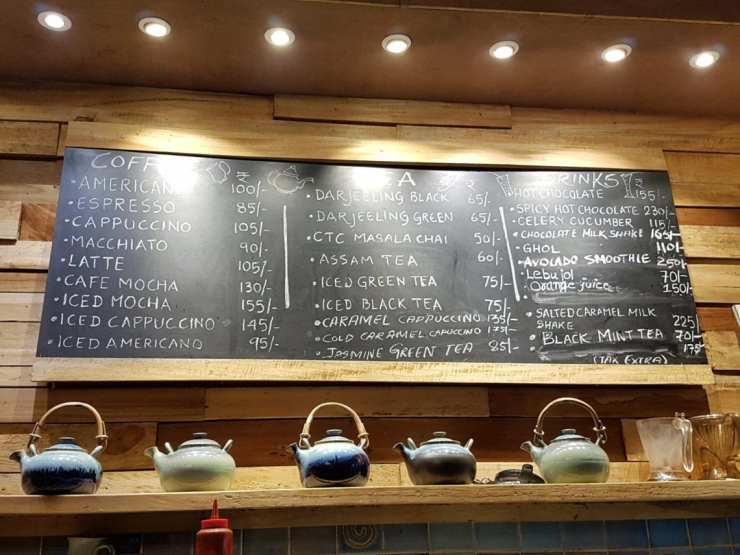 COFF
₹
AMERICAN 100/-
ESPRESSO 85/-
CAPPUCCINO 105/-
MACCHIATO 90/-
LATTE 105/-
CAFE MOCHA 130/-
ICED MOCHA 155/-
ICED CAPPUCCINO 145/-
ICED AMERICANO 95/-
EA
₹
DARJEELING BLACK 65/-
DARJEELING GREEN 65/-
CTC MASALA CHAI 50/-
ASSAM TEA 60/-
ICED GREEN TEA 75/-
ICED BLACK TEA 75/-
CARAMEL CAPPUCCINO 135/-
COLD CARAMEL CAPUCCINO
JASMINE GREEN TEA 85/-
DRINKS
₹
HOT CHOCOLATE 155/-
SPICY HOT CHOCOLATE 230/-
CELERY CUCUMBER 115/-
CHOCOLATE MILK SHAKE 165/-
GHOL 110/-
AVOCADO SMOOTHIE 250/-
Lebujol 70/-
Orange juice 150/-
SALTED CARAMEL MILK
SHAKE 225
BLACK MINT TEA 70/-
175
(TAX EXTRA)